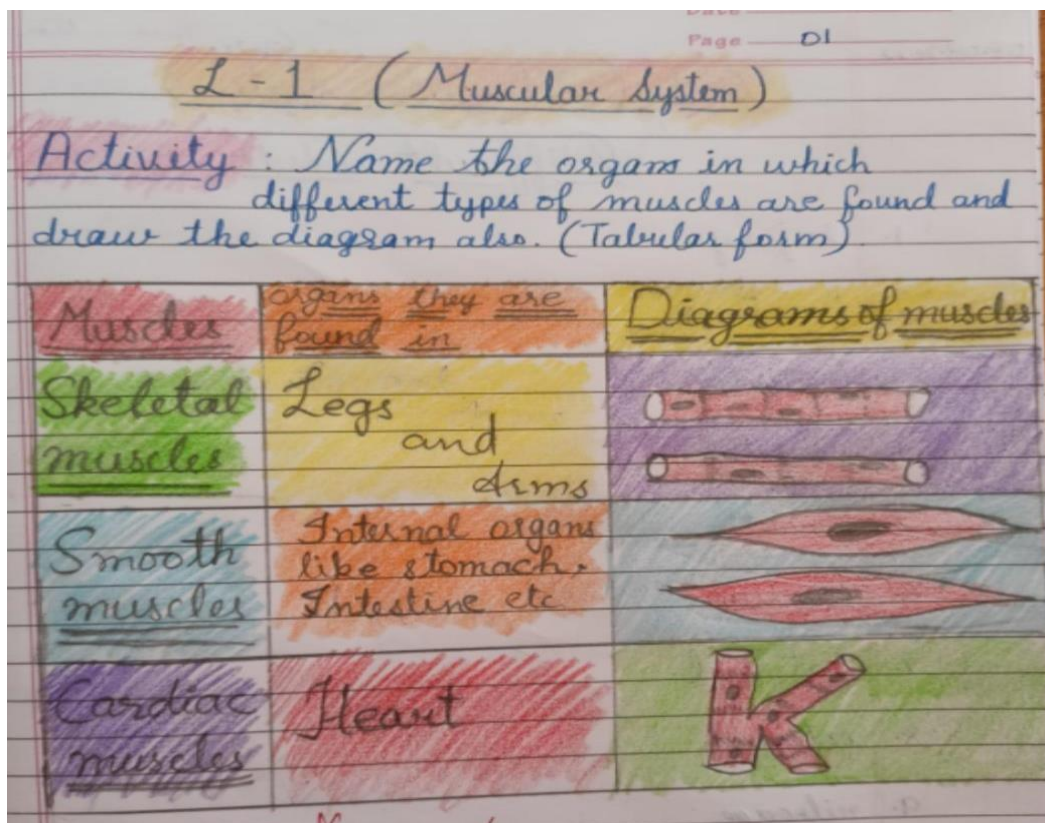 Page 01
L - 1 (Muscular System)
Activity : Name the organs in which
different types of muscles are found and
draw the diagram also. (Tabular form)
Muscles
organs they are
found in
Diagrams of muscles
Skeletal
muscles
Legs
and
Arms
Smooth
muscles
Internal organs
like stomach,
Intestine etc
Cardiac
muscles
Heart